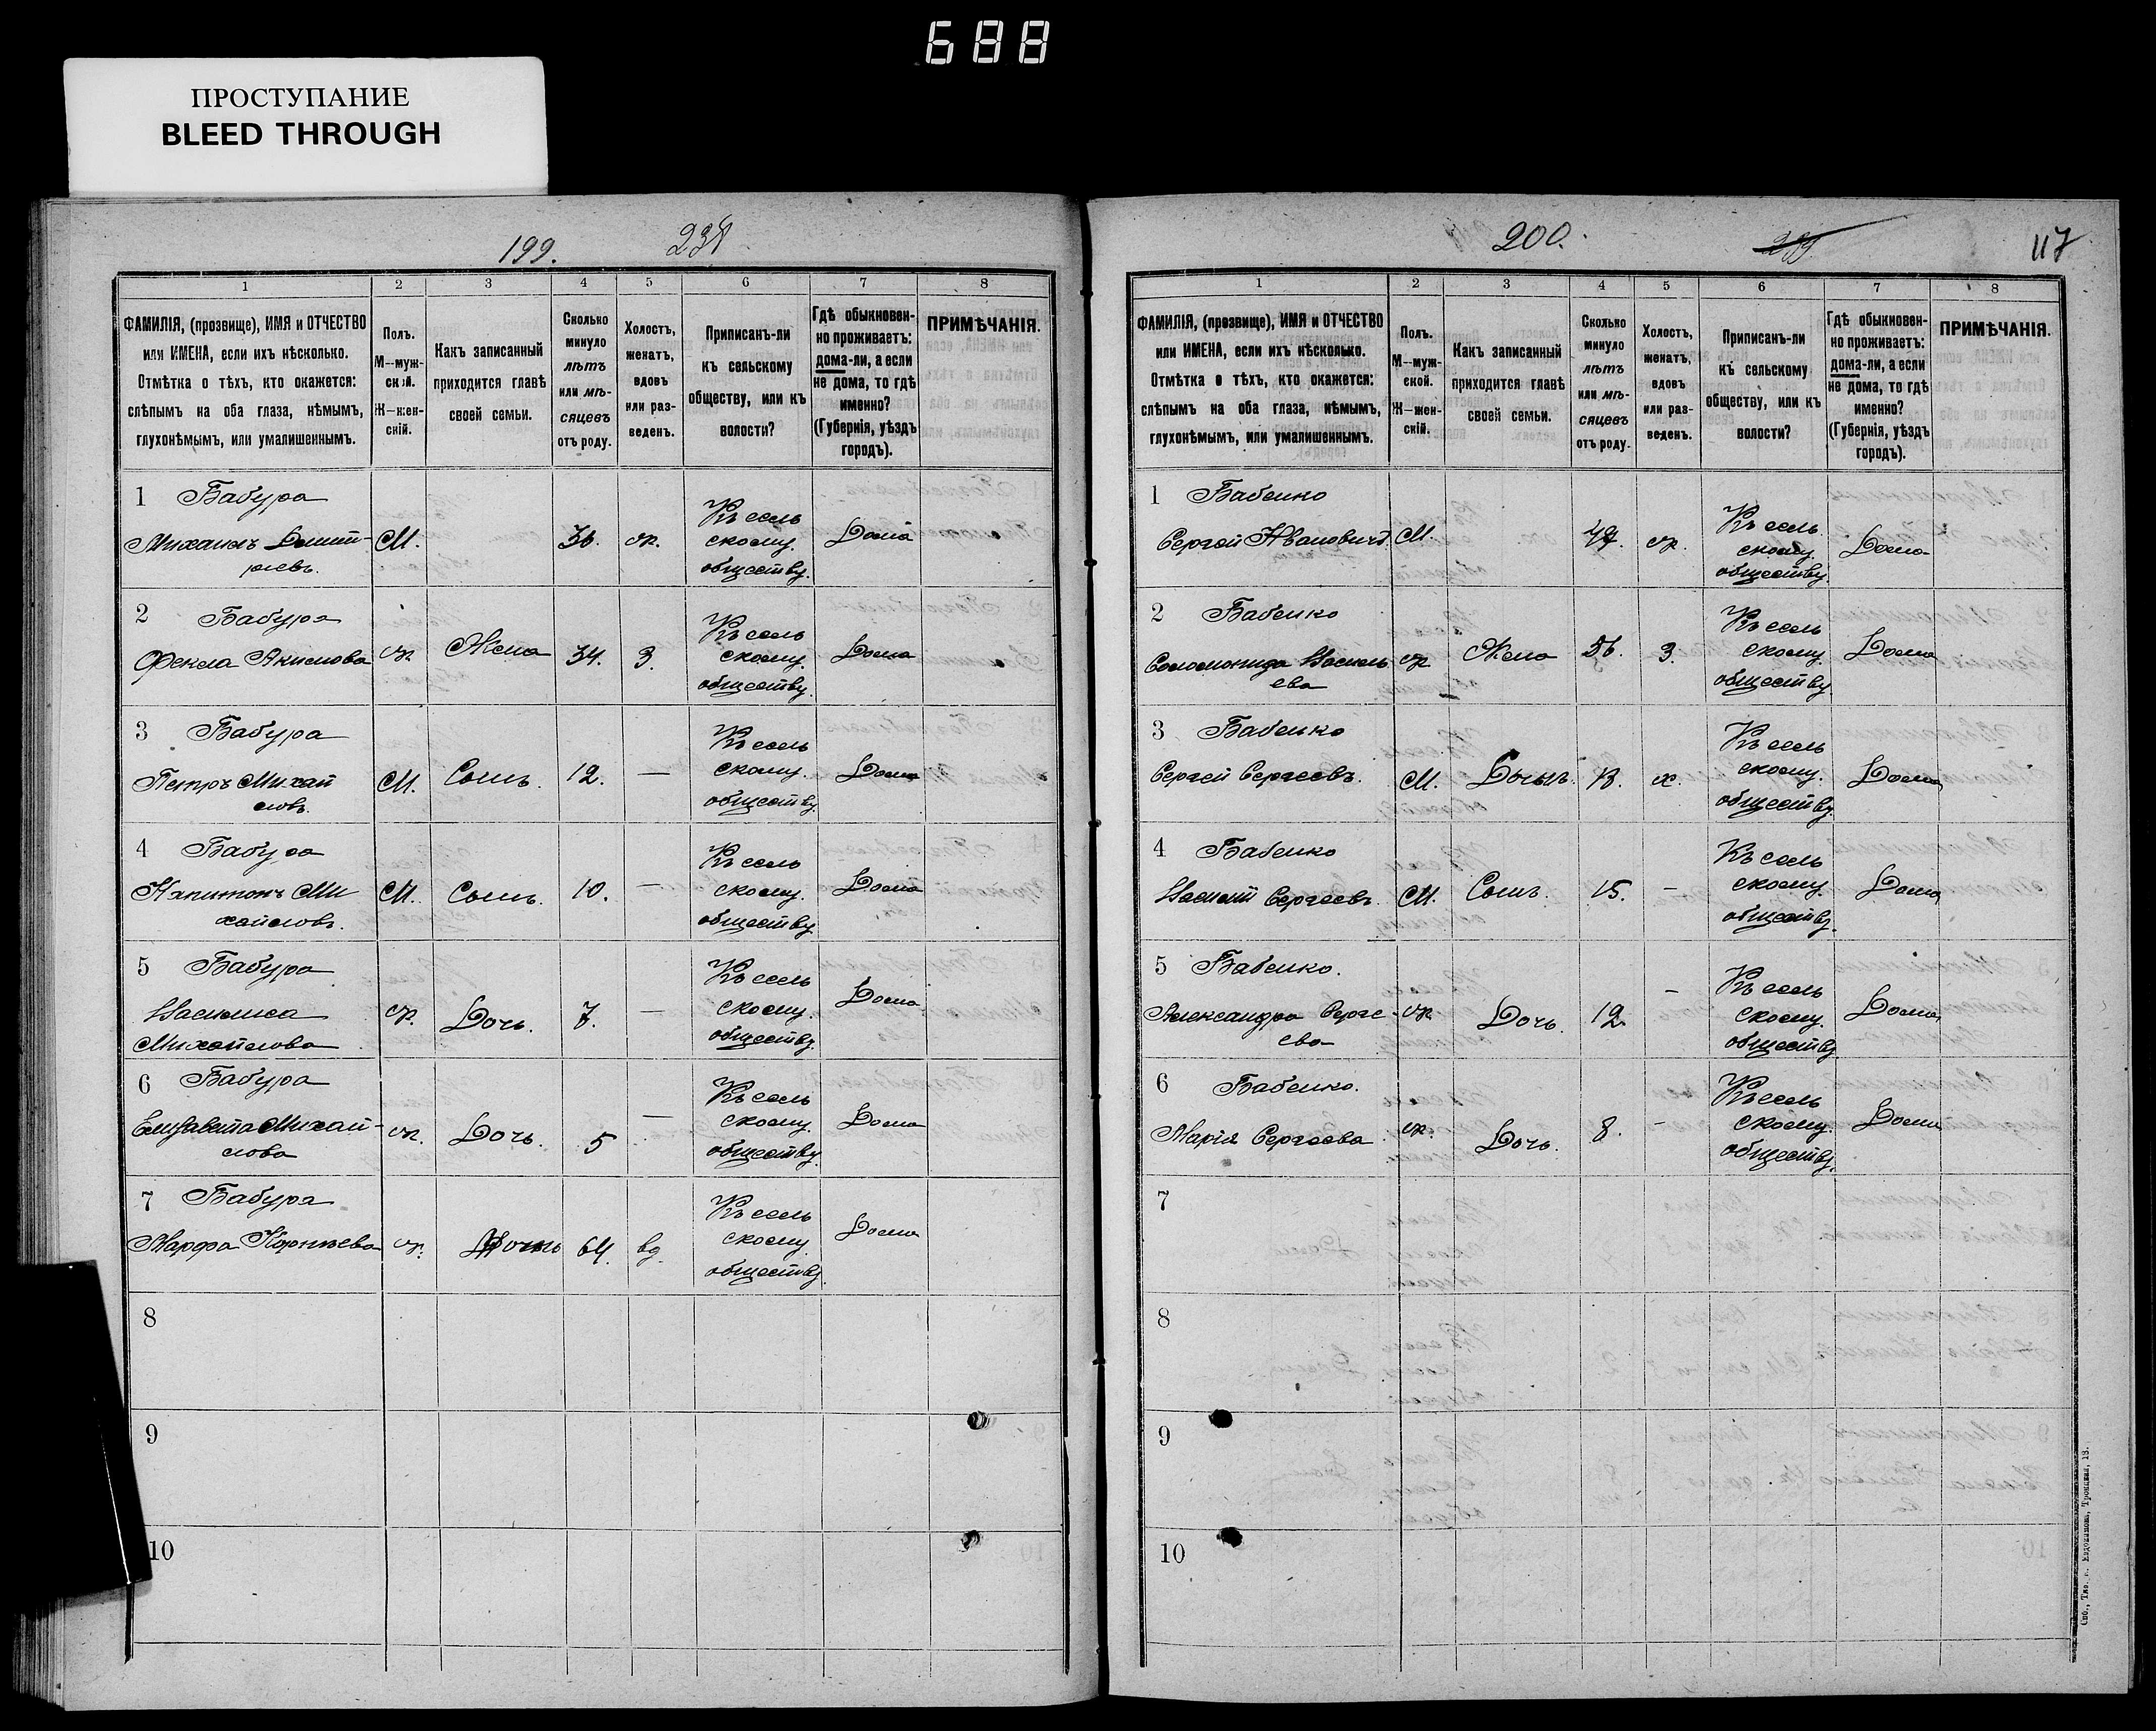 688
ПРОСТУПАНИЕ
BLEED THROUGH
199.
1 2 3 4 5 6 7 8
ФАМИЛІЯ, (прозвище), ИМЯ и ОТЧЕСТВО
или ИМЕНА, если ихъ нѣсколько.
Отмѣтка о тѣхъ, кто окажется:
слѣпымъ на оба глаза, нѣмымъ,
глухонѣмымъ, или умалишеннымъ.
Полъ.
М—муж-
ской.
Ж—жен-
скій.
Какъ записанный
приходится главѣ
своей семьи.
Сколько
минуло
лѣтъ
или мѣ-
сяцевъ
отъ роду.
Холостъ,
женатъ,
вдовъ
или раз-
веденъ.
Приписанъ-ли
къ сельскому
обществу, или къ
волости?
Гдѣ обыкновен-
но проживаетъ:
дома-ли, а если
не дома, то гдѣ
именно?
(Губернія, уѣздъ
городъ).
ПРИМѢЧАНІЯ.
1 Бабура
Михаилъ Дмит-
ріевъ.
М.
36.
ж.
Къ сель
скому
обществу.
Дома
2 Бабура
Фекла Акимова
ж
Жена
34.
З.
Къ сель
скому
обществу.
Дома
3 Бабура
Петръ Михай
ловъ.
М.
Сынъ.
12.
—
Къ сель
скому.
обществу.
Дома
4 Бабура
Капитонъ Ми
хайловъ.
М.
Сынъ.
10.
—
Къ сель
скому.
обществу.
Дома
5 Бабура
Василиса
Михайлова
ж.
Дочь.
7.
—
Къ сель
скому.
обществу.
Дома
6 Бабура
Елизавета Михай-
лова
ж.
Дочь.
5
—
Къ сель
скому.
обществу.
Дома
7 Бабура
Марфа Корнѣева
ж.
64.
вд.
Къ сель
скому
обществу.
Дома
8
9
10
200.
117
1 2 3 4 5 6 7 8
ФАМИЛІЯ, (прозвище), ИМЯ и ОТЧЕСТВО
или ИМЕНА, если ихъ нѣсколько.
Отмѣтка о тѣхъ, кто окажется:
слѣпымъ на оба глаза, нѣмымъ,
глухонѣмымъ, или умалишеннымъ.
Полъ.
М—муж-
ской.
Ж—жен-
скій.
Какъ записанный
приходится главѣ
своей семьи.
Сколько
минуло
лѣтъ
или мѣ-
сяцевъ
отъ роду.
Холостъ,
женатъ,
вдовъ
или раз-
веденъ.
Приписанъ-ли
къ сельскому
обществу, или къ
волости?
Гдѣ обыкновен-
но проживаетъ:
дома-ли, а если
не дома, то гдѣ
именно?
(Губернія, уѣздъ
городъ).
ПРИМѢЧАНІЯ.
1 Бабенко
Сергей Ивановичъ.
М.
ж.
Къ сель
скому
обществу
Дома
2 Бабенко
Соломонида Василь
ева
ж
Жена
З.
Къ сель
скому
обществу
Дома
3 Бабенко
Сергей Сергеевъ.
М.
х.
Къ сель
скому.
обществу.
Дома
4 Бабенко
Василий Сергеевъ.
М.
Сынъ.
15.
-
Къ сель
скому.
обществу.
Дома
5 Бабенко.
Александра Серге-
ева
ж
Дочь.
12.
-
Къ сель
скому.
обществу
Дома
6 Бабенко.
Марія Сергеева
ж.
Дочь.
8.
-
Къ сель
скому.
обществу.
Дома
7
8
9
10